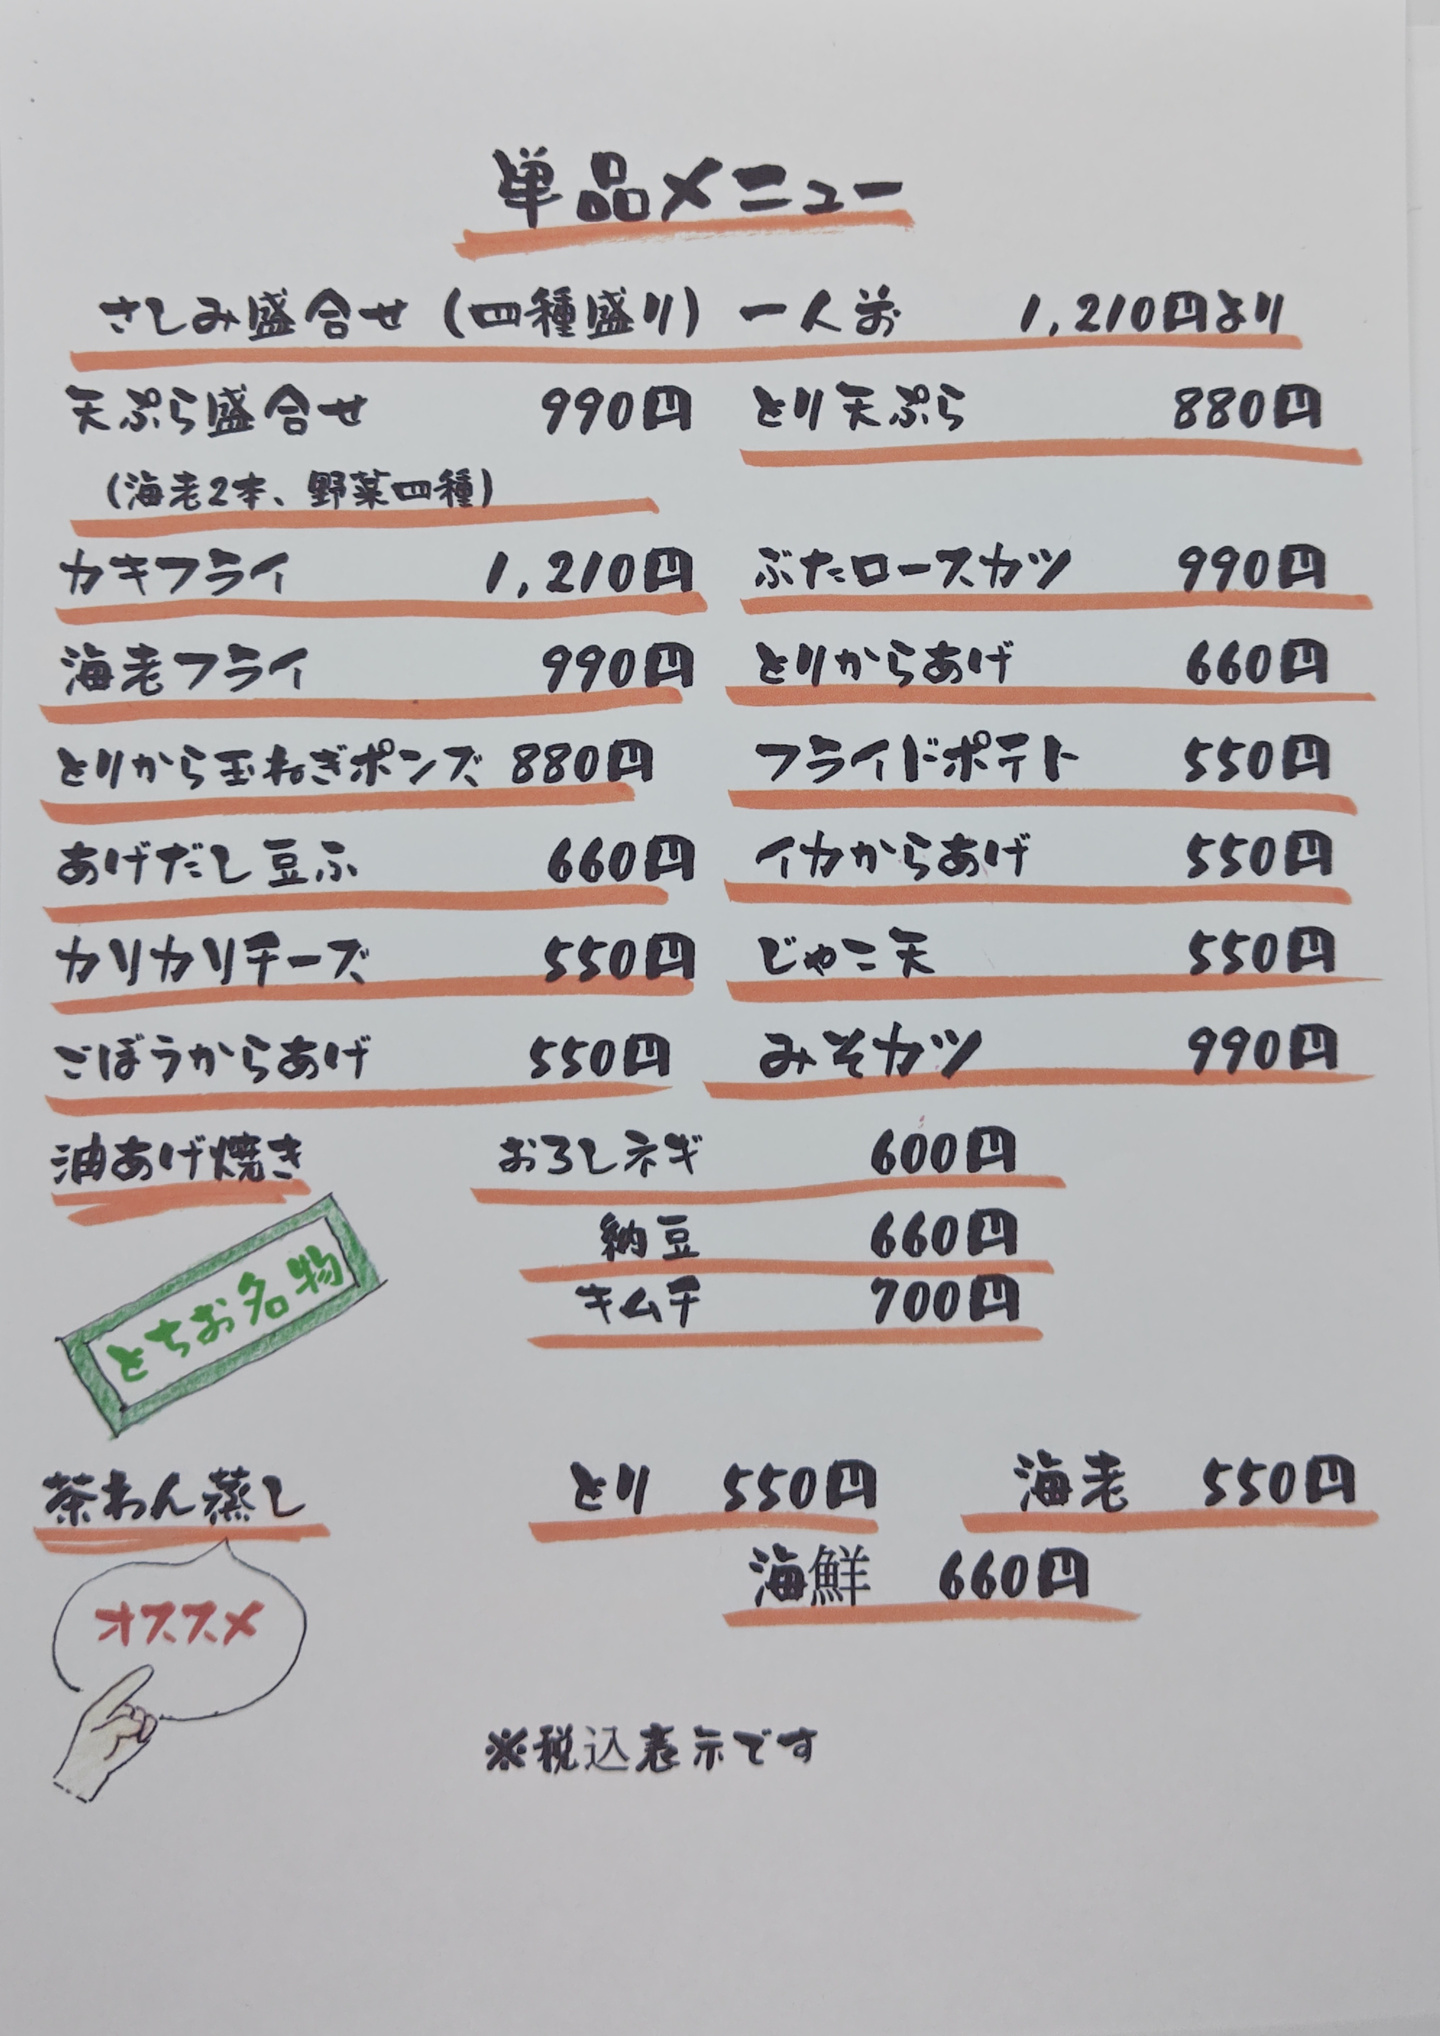 単品メニュー
さしみ盛合せ(四種盛り) 一人前 1,210円より
天ぷら盛合せ 990円 とり天ぷら 880円
(海老2本、野菜四種)
カキフライ 1,210円 ぶたロースカツ 990円
海老フライ 990円 とりからあげ 660円
とりから玉ねぎポンズ 880円 フライドポテト 550円
あげだし豆ふ 660円 イカからあげ 550円
カリカリチーズ 550円 じゃこ天 550円
ごぼうからあげ 550円 みそカツ 990円
油あげ焼き おろしネギ 600円
納豆 660円
キムチ 700円
とちお名物
茶わん蒸し とり 550円 海老 550円
海鮮 660円
オススメ
※税込表示です